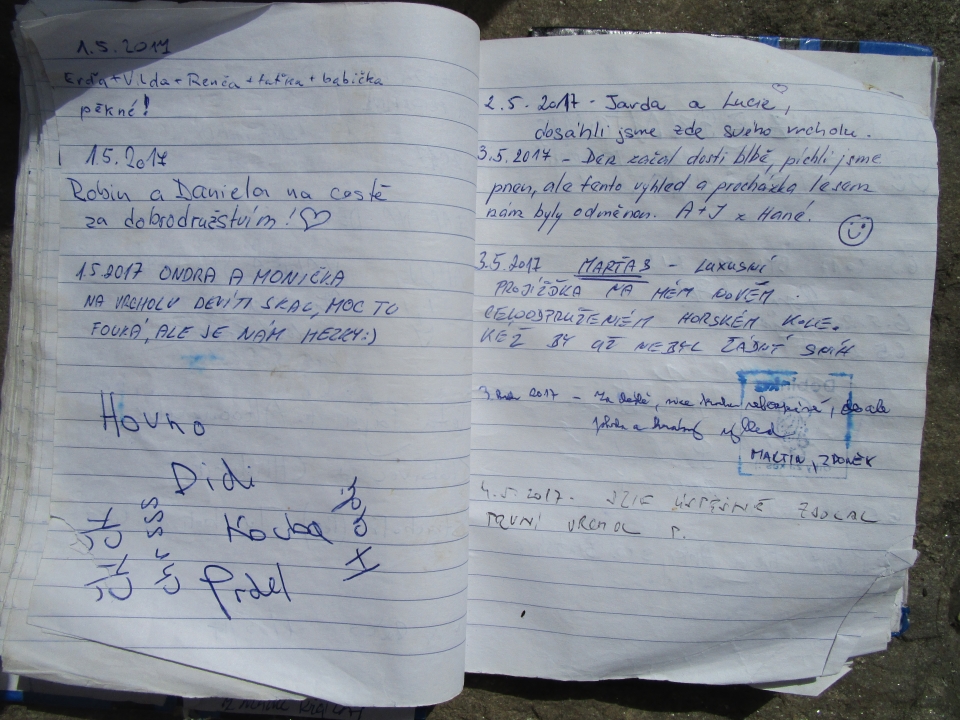 1.5.2017
Erďa+Vilda+Renča+taťka+babička
pěkné!
1.5.2017
Robin a Daniela na cestě
za dobrodružstvím!♡
1.5.2017 ONDRA A MONIČKA
NA VRCHOLU DEVÍTI SKAL, MOC TO
FOUKÁ, ALE JE NÁM HEZKY:)
Hovno
Didi
Kovba
Prdel
2.5. 2017 - Jarda a Lucie,
dosáhli jsme zde svého vrcholu.
3.5.2017 - Den začal dosti blbě, píchli jsme
pneu, ale tento výhled a procházka lesem
nám byly odměnou. A+J z Hané.
3.5.2017 MARŤAS - LUXUSNÍ
PROJÍŽĎKA NA MÉM NOVÉM
CELOODPRUŽENÉM HORSKÉM KOLE.
KÉŽ BY UŽ NEBYL ŽÁDNÝ SNÍH
2017 -
a krásný výhled
MARTIN, ZDONĚK
4.5.2017 - ÚSPĚŠNĚ ZDOLAL
PRVNÍ VRCHOL